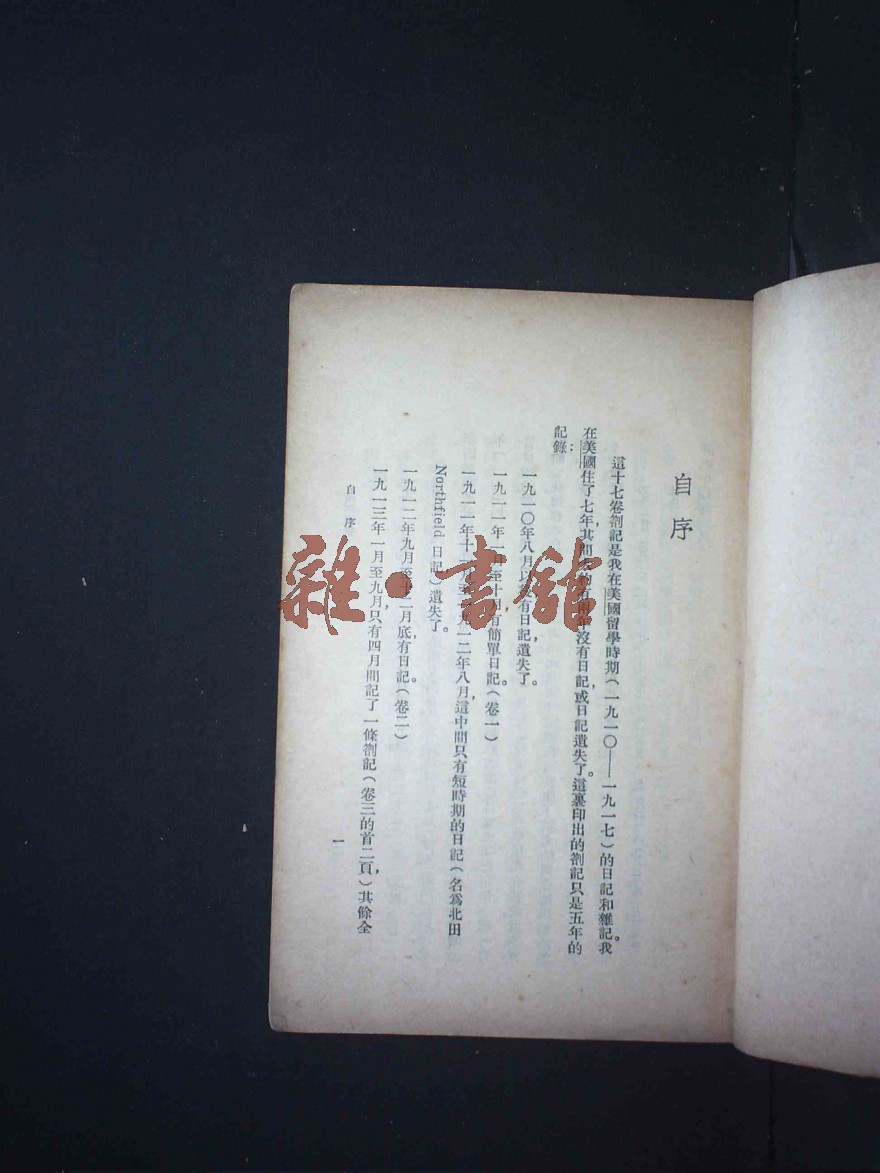 自序
這十七卷劄記是我在美國留學時期(一九一〇——一九一七)的日記和雜記。我
在美國住了七年,其間大約有兩年沒有日記,或日記遺失了。這裏印出的劄記只是五年的
記錄:
一九一〇年八月以後有日記,遺失了。
一九一一年一月至十月,有簡單日記。(卷一)
一九一一年十一月至一九一二年八月,這中間只有短時期的日記(名為北田
Northfield 日記)遺失了。
一九一二年九月至十二月底,有日記。(卷二)
一九一三年一月至九月,只有四月間記了一條劄記(卷三的首二頁,)其餘全
自序
一
雜·書館